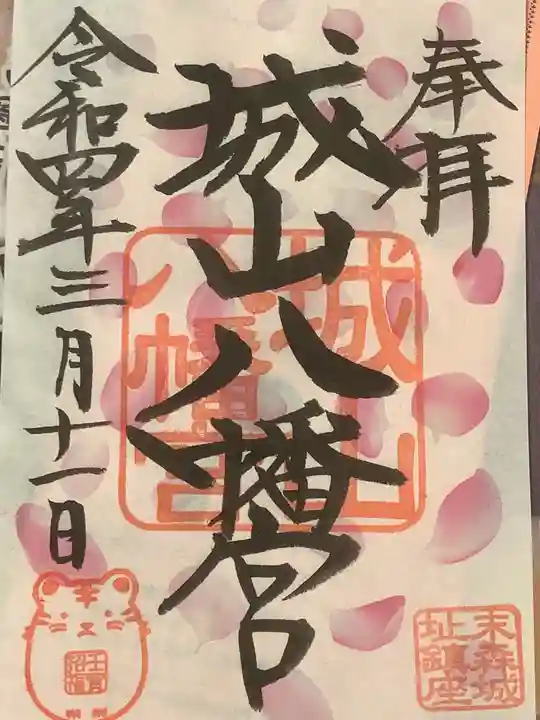 奉拝
城山八幡宮
令和四年三月十一日
城山
八幡宮
末森城
址鎮座